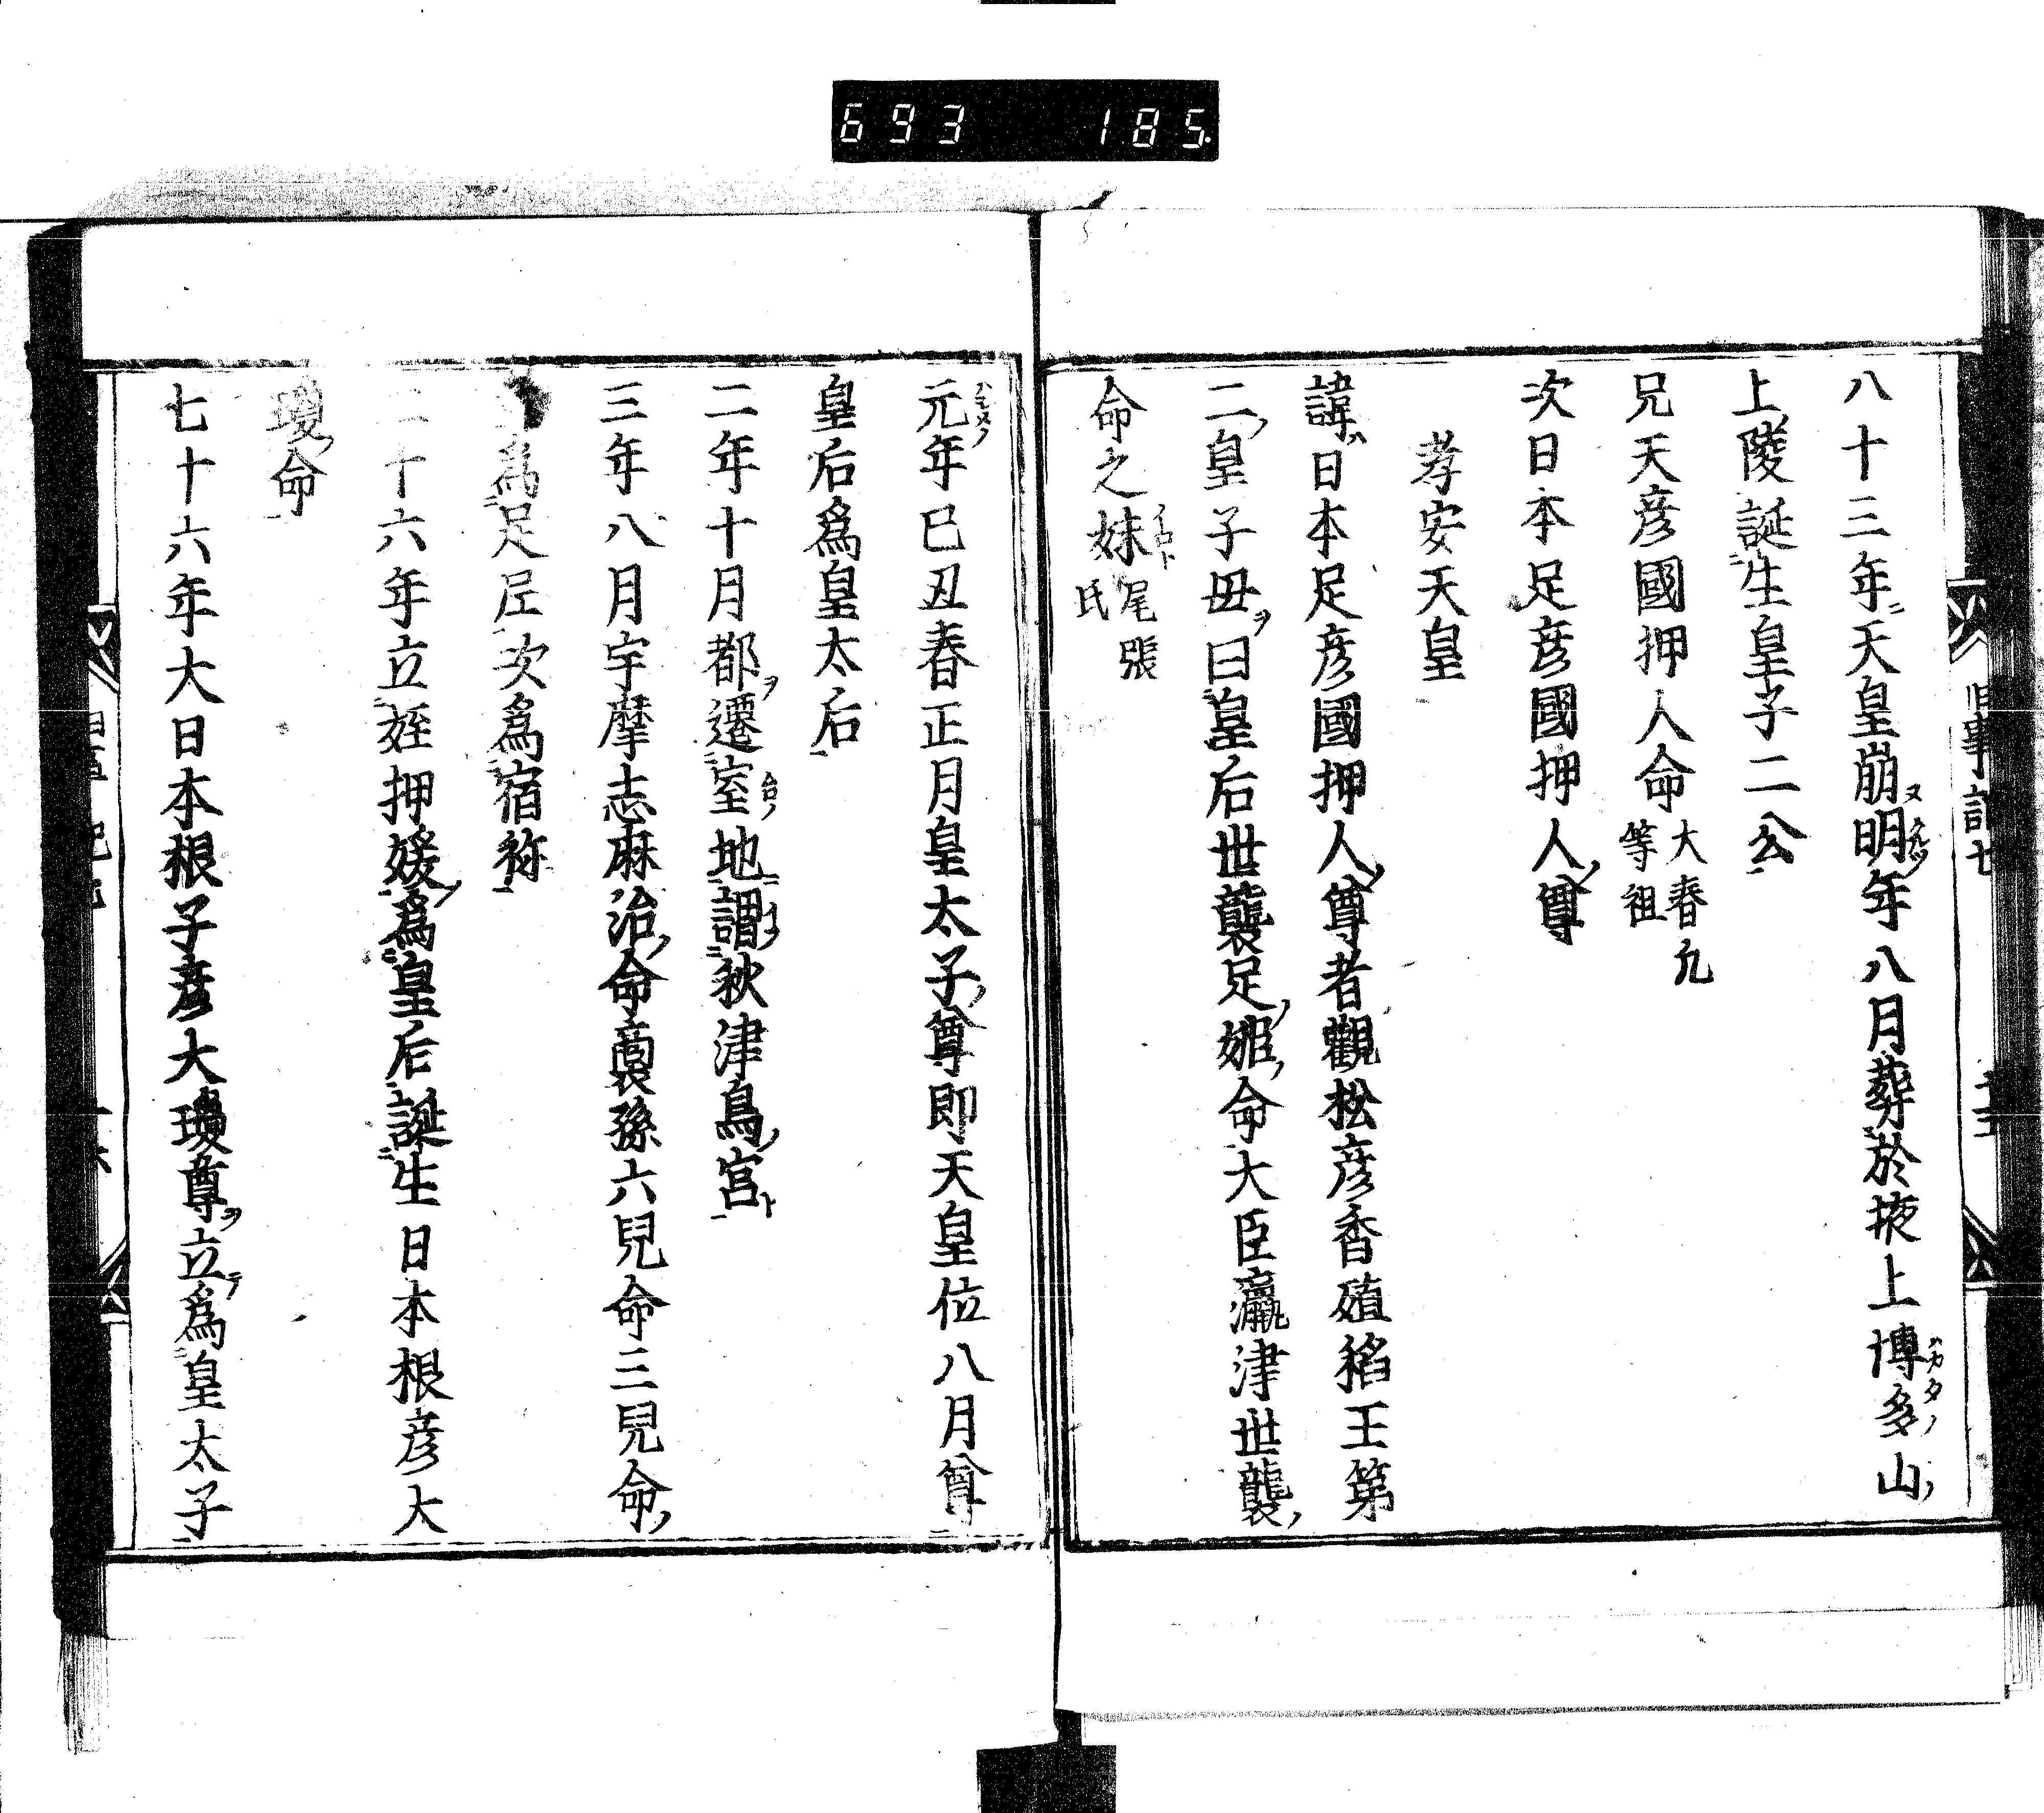 693 185.
八十三年天皇崩明年八月葬於掖上博多山
上陵誕生皇子二公
兄天彦國押人命大春九等祖
次日本足彦國押人尊
孝安天皇
諱日本足彦國押人尊者觀松彦香殖稻王第
二皇子母曰皇后世襲足姫命大臣瀛津世襲
命之妹尾張氏
元年已丑春正月皇太子尊即天皇位八月尊
皇后爲皇太后
二年十月都遷室地謂秋津島宮
三年八月宇摩志麻治命裔孫六兒命三兒命
爲足尼次爲宿祢
二十六年立姪押媛爲皇后誕生日本根彦大
瓊命
七十六年大日本根子彦大瓊尊立爲皇太子